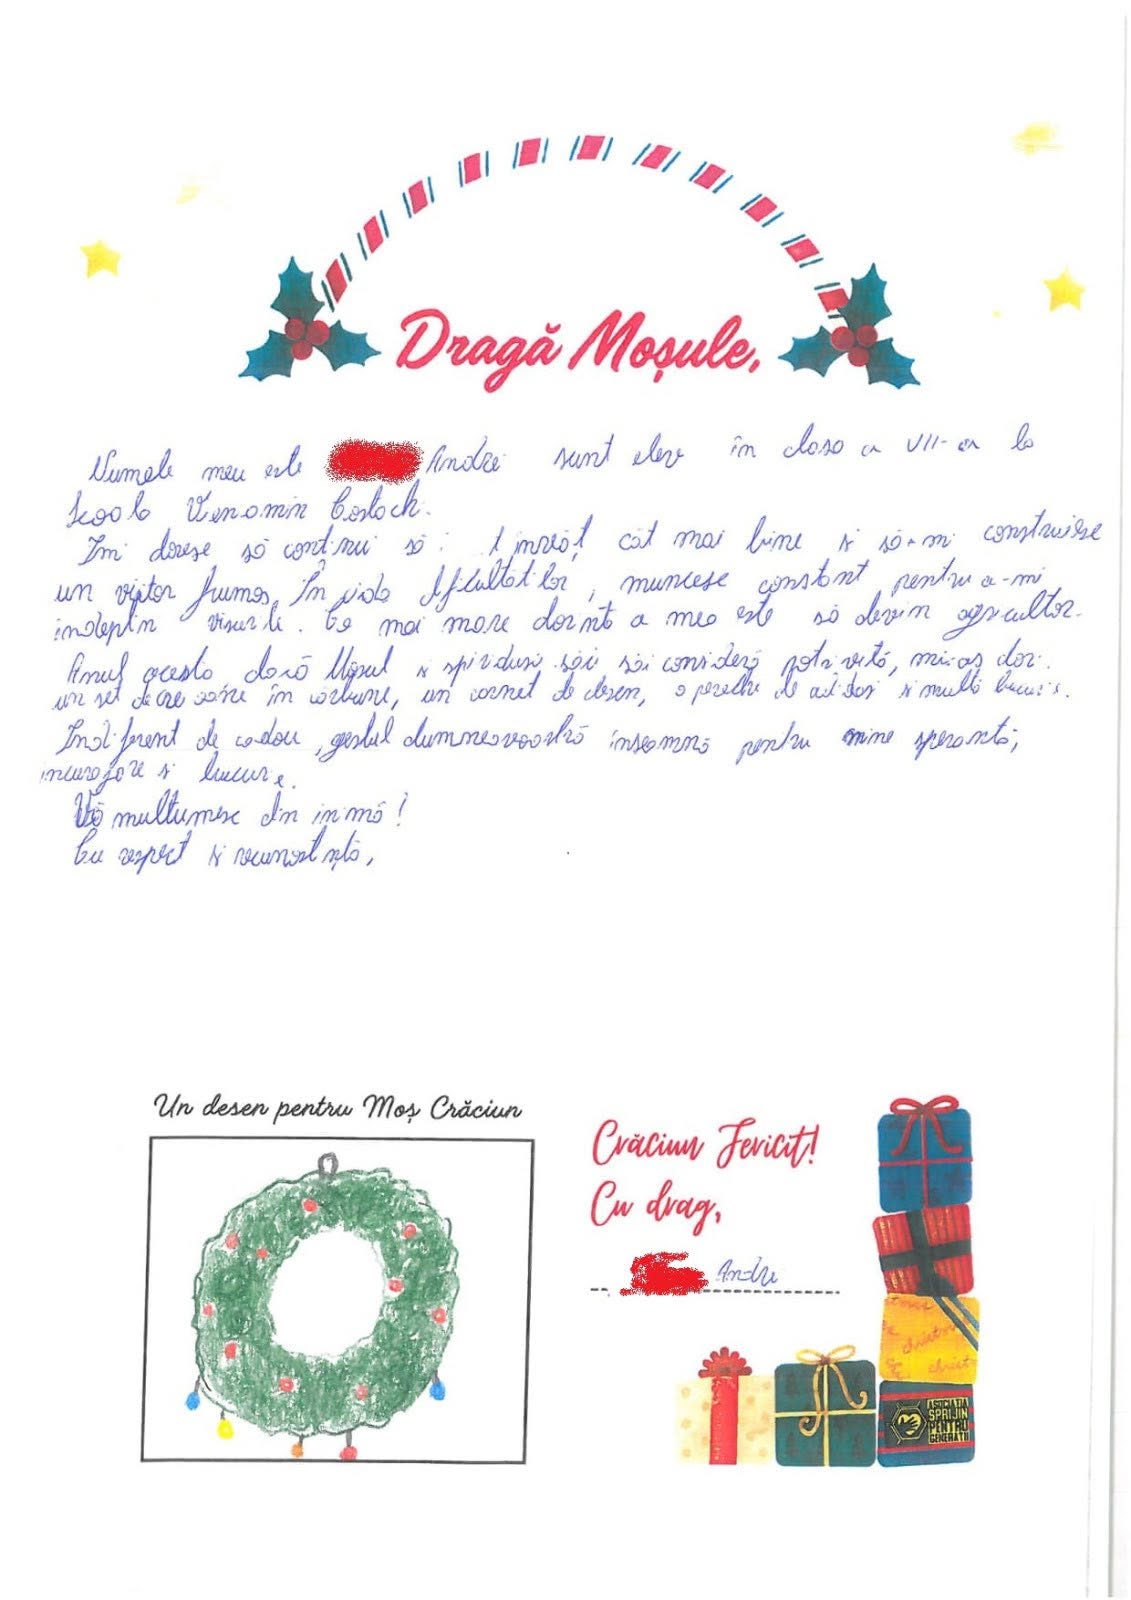 Dragă Moșule,
Numele meu este Andrei sunt elev în clasa a VII-a la
Școala Veniamin Costach.
Îmi doresc să continui să învăț cât mai bine și să-mi construiesc
un viitor frumos. În viața dificultăților, muncesc constant pentru a-mi
îndeplin visurile. Ce mai mare dorință a mea este să devin agricultor.
Anul acesta dacă Moșul și spiridușii săi săi consideră potrivită, mi-aș dori
un set de creioane în cărbune, un carnet de desen, o pereche de adidași și multă bucurie.
Indiferent de cadou, gestul dumneavoastră înseamnă pentru mine speranță,
incurajare și bucurie.
Vă mulțumesc din inimă!
Cu respect și recunoștință,
Un desen pentru Moș Crăciun
Crăciun Fericit!
Cu drag,
Andrei
christmas
christ
ASOCIAȚIA
SPRIJIN
PENTRU
GENERAȚII